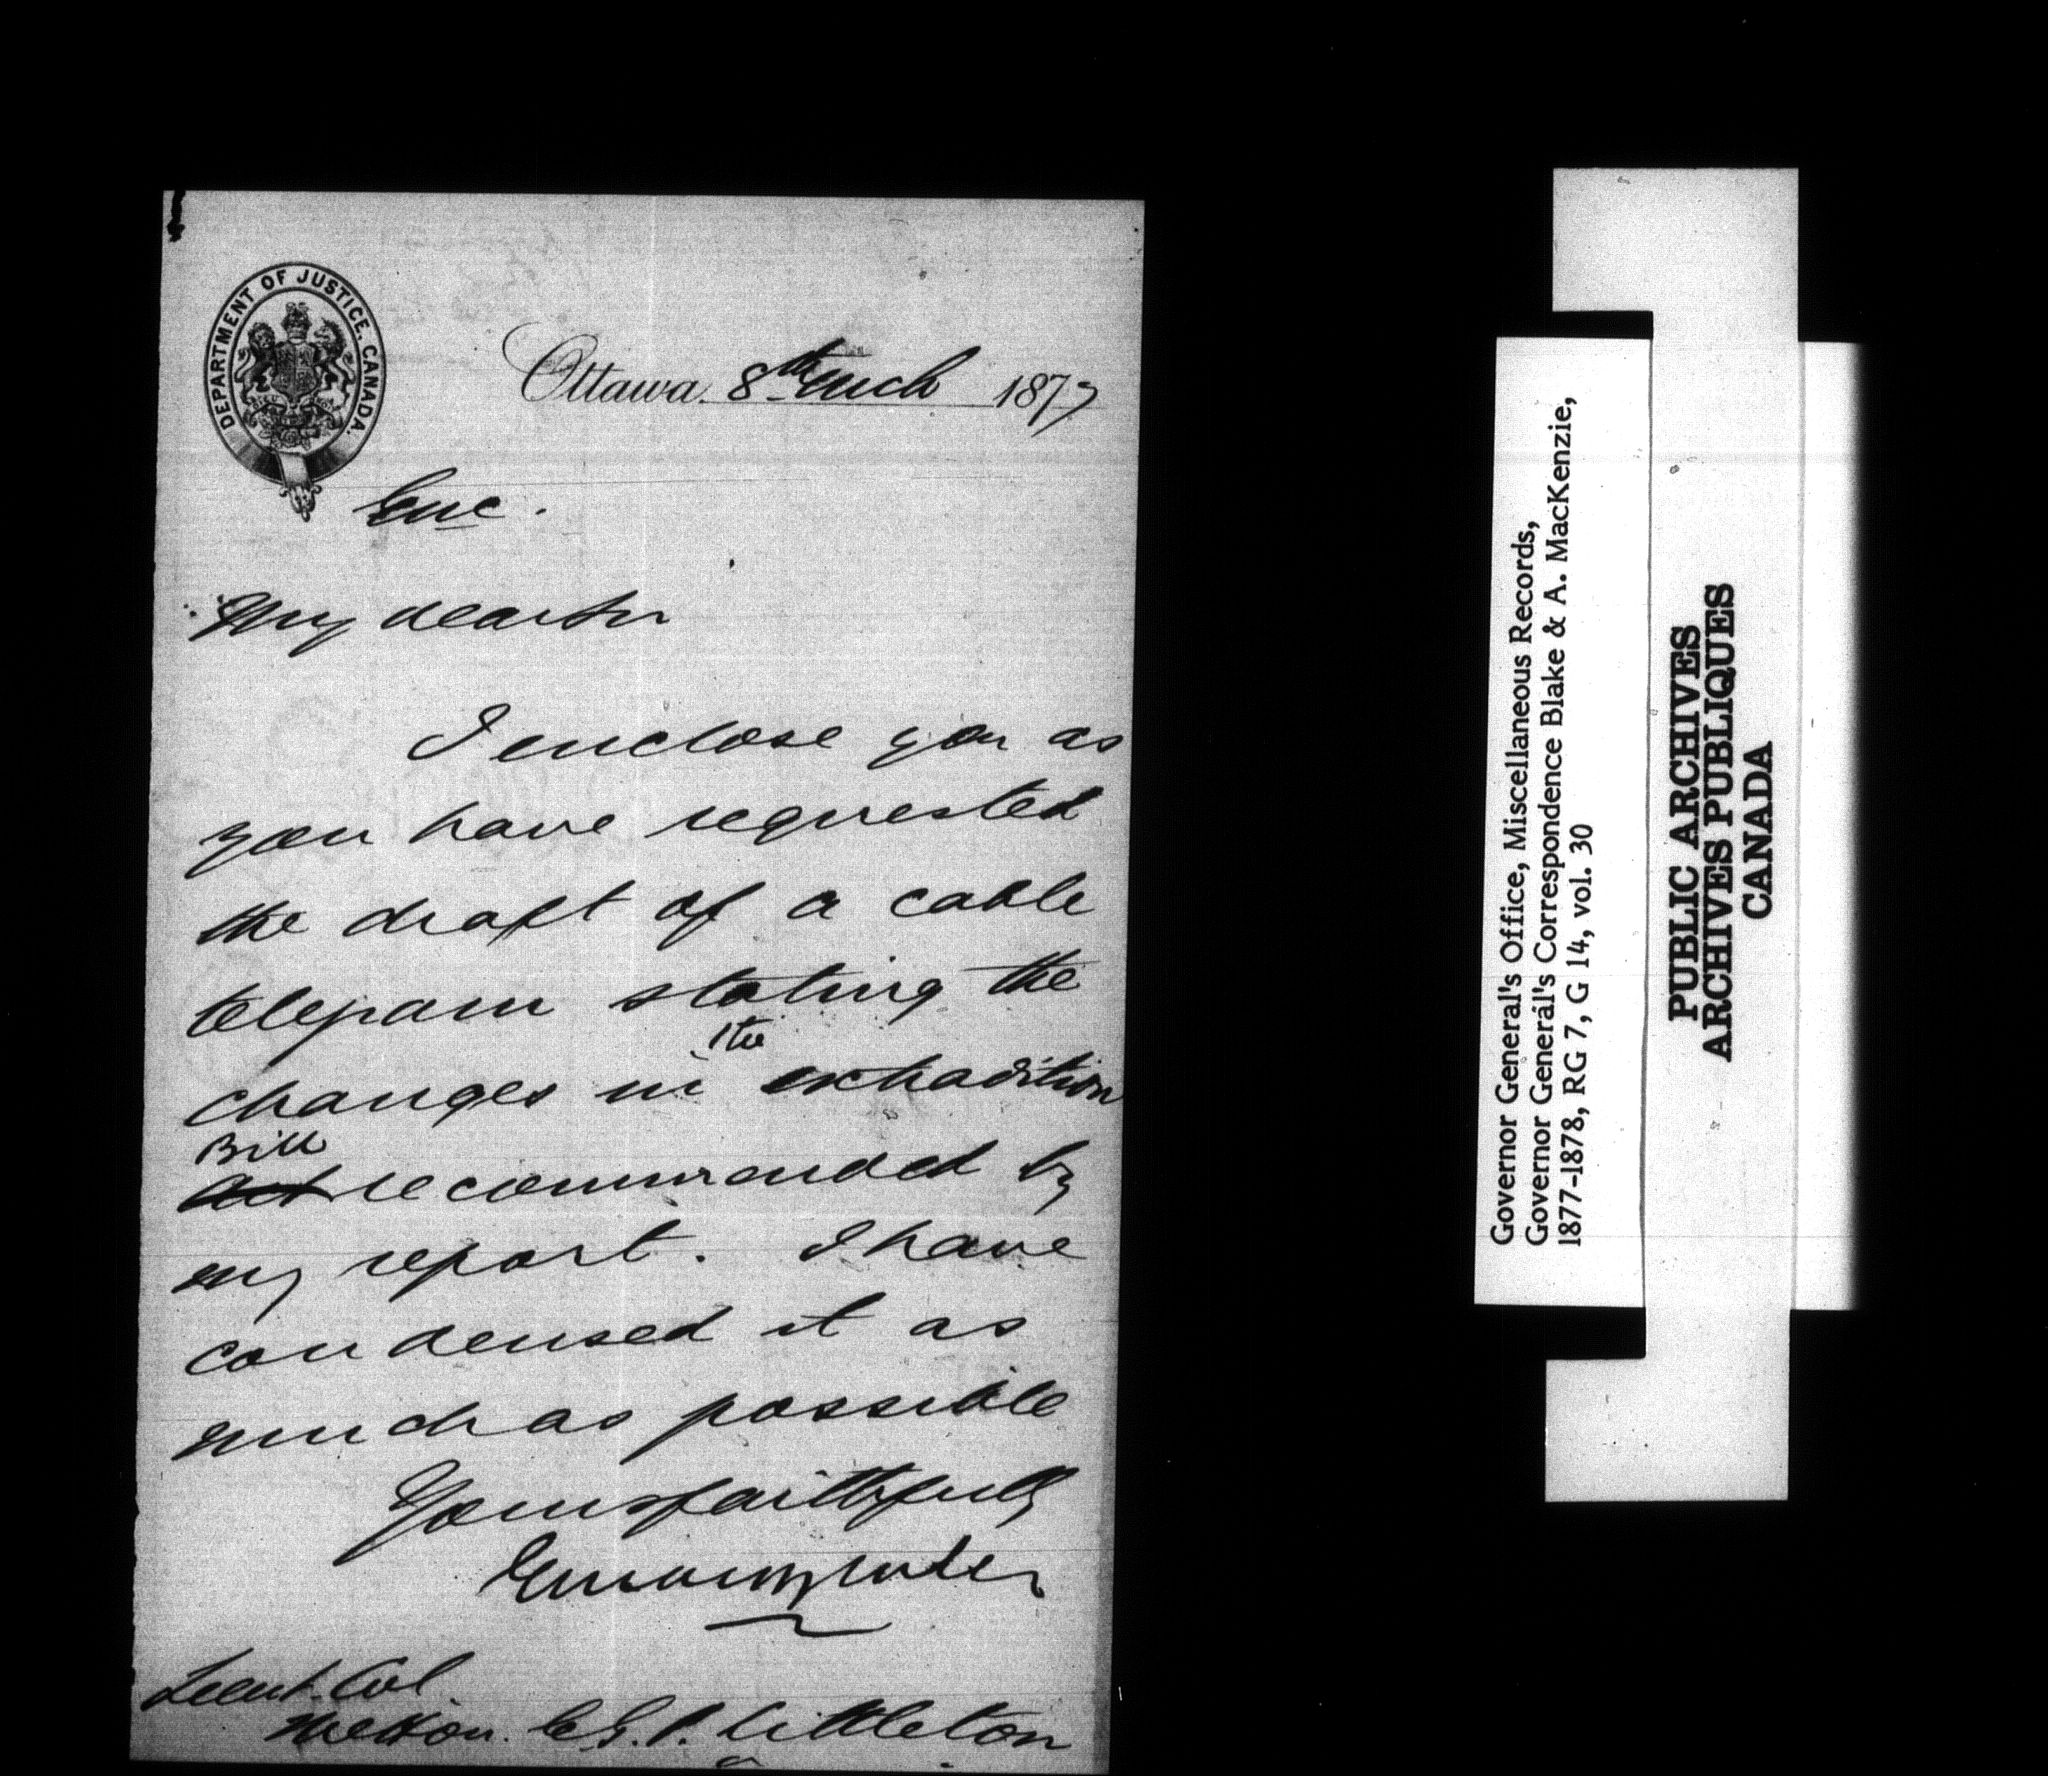 DEPARTMENT OF JUSTICE, CANADA.
Ottawa. 8th Mch 1877
Enc.
My dear Sir
I enclose you as
you have requested
the draft of a cable
telegram stating the
changes in the extradition
Bill
Act recommended by
my report. I have
condensed it as
much as possible
Yours faithfully
Edward Blake
Lieut. Col.
The Hon. E.G.P. Littleton
Governor General's Office, Miscellaneous Records,
Governor General's Correspondence Blake & A. MacKenzie,
1877-1878, RG 7, G 14, vol. 30
PUBLIC ARCHIVES
ARCHIVES PUBLIQUES
CANADA